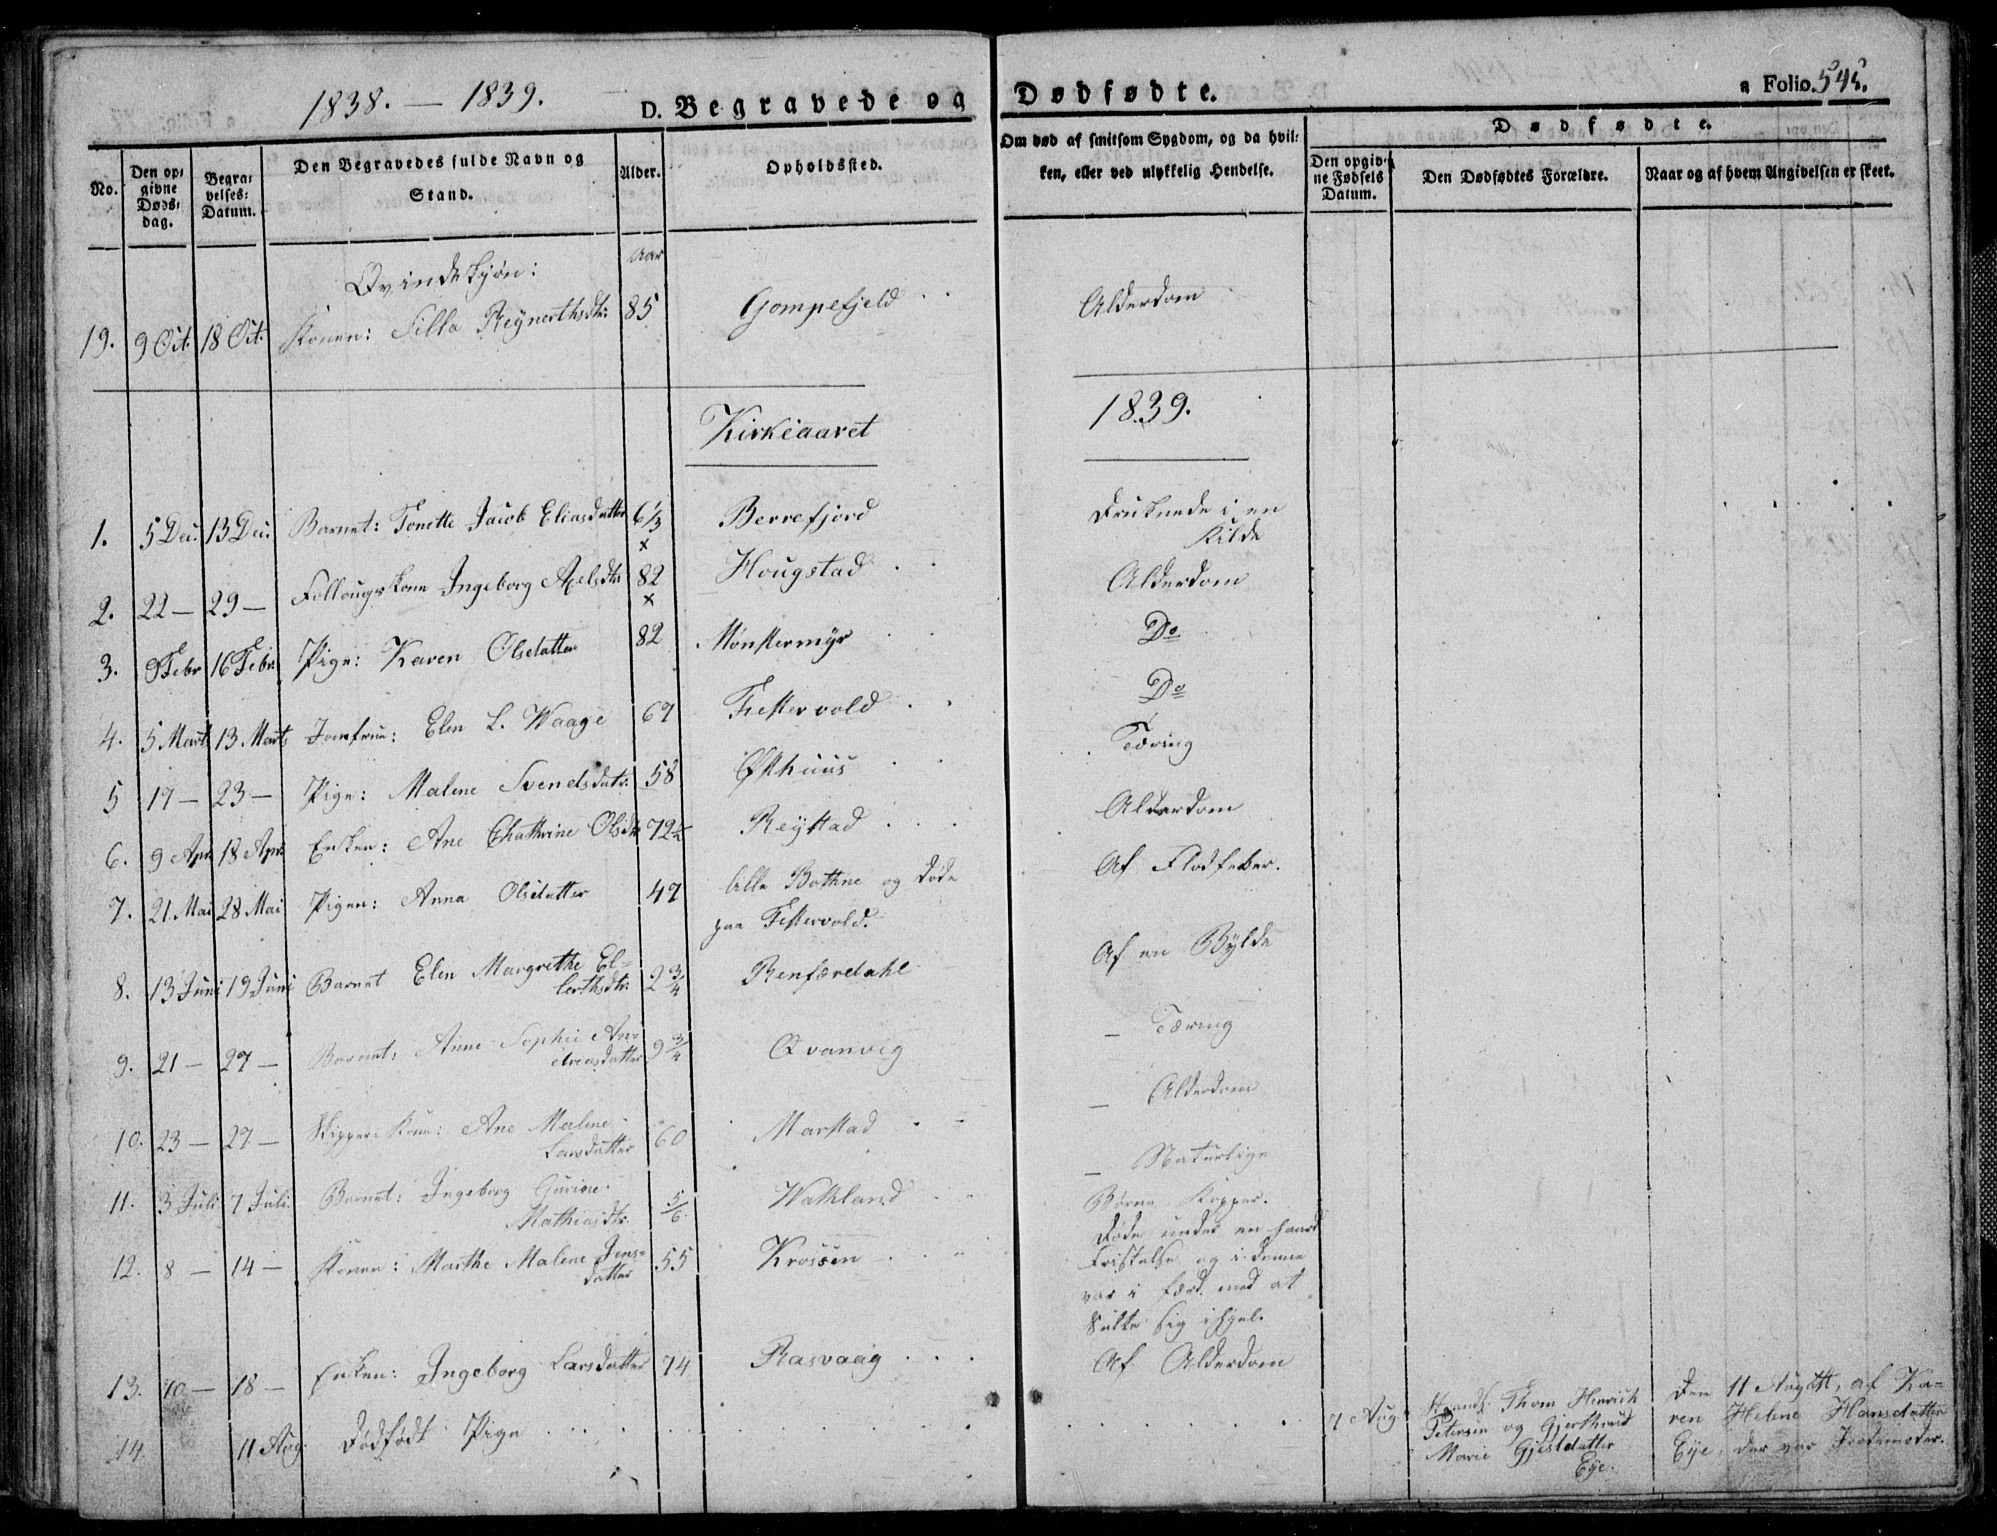 1838. — 1839.
D. Begravede og Dødfødte.
a Folio. 545.
No.
Den opgivne Døds-dag.
Begravelses-Datum.
Den Begravedes fulde Navn og Stand.
Alder.
Opholdssted.
Om død af smitsom Sygdom, og da hvilken, eller ved ulykkelig Hendelse.
Dødfødte.
Den opgivne Fødsels Datum.
Den Dødfødtes Forældre.
Naar og af hvem Angivelsen er skeet.
Qvindekjøn: Aar
19. 9 Oct. 18 Oct. Konen: Silla Reynerthsdtr: 85 Gompefjeld Alderdom
Kirkeaaret 1839.
1. 5 Dec. 13 Dec. Barnet: Tonette Jacob Eliasdatter 6 1/3 Berrefjord Druknede i en
Kilde
2. 22 — 29 — Follougskone Ingeborg Axelsdtr 82 Hougstad Alderdom
3. 9 Febr 16 Febr: Pige: Karen Olsdatter 82 Mønstermyr Do
4. 5 Marts 13 Marts Jomfrue: Elen L. Waage 67 Festervold Do
5 17 — 23 — Pige: Malene Svendsdatr: 58 Østhuus Tæring
6. 9 Apr. 18 Apr: Enken: Ane Chathrine Olsdtr 72 1/2 Reystad Alderdom
7. 21 Mai 28 Mai Pigen: Anna Olsdatter 47 lille Bothne og døde
paa Festervold. Af Flodfeber.
8. 13 Juni 19 Juni Barnet Elen Margrethe El-
lertsdtr: 2 3/4 Renfærdahl Af en Bylde
9. 21 — 27 — Barnet: Anne Sophie An-
dreasdatter 9 3/4 Qvanvig — Tæring
10. 23 — 27 — Skipper-Kone: Ane Malene
Larsdatter 60 Marstad — Alderdom
11. 3 Juli 7 Juli. Barnet: Ingeborg Gurine
Mathiasdtr. 5/6 Wathland — Naturlige
Børne Kopper.
12. 8 — 14 — Konen: Marthe Malene Jens-
datter 55 Krossen Døde under en haard
Fristelse og i denne
var i færd med at
sulte sig ihjel.
13. 10 — 18 — Enken: Ingeborg Larsdatter 74 Rasvaag Af Alderdom
14. 11 Aug. Dødfødt Pige 7 Aug.
Thom Hinrich
Petersen og Gjerthrud
Marie Gjestdatter
Eye.
Den 11 August, af Ka-
ren Helene Hansdatter
Eye, der var Jordemoder.